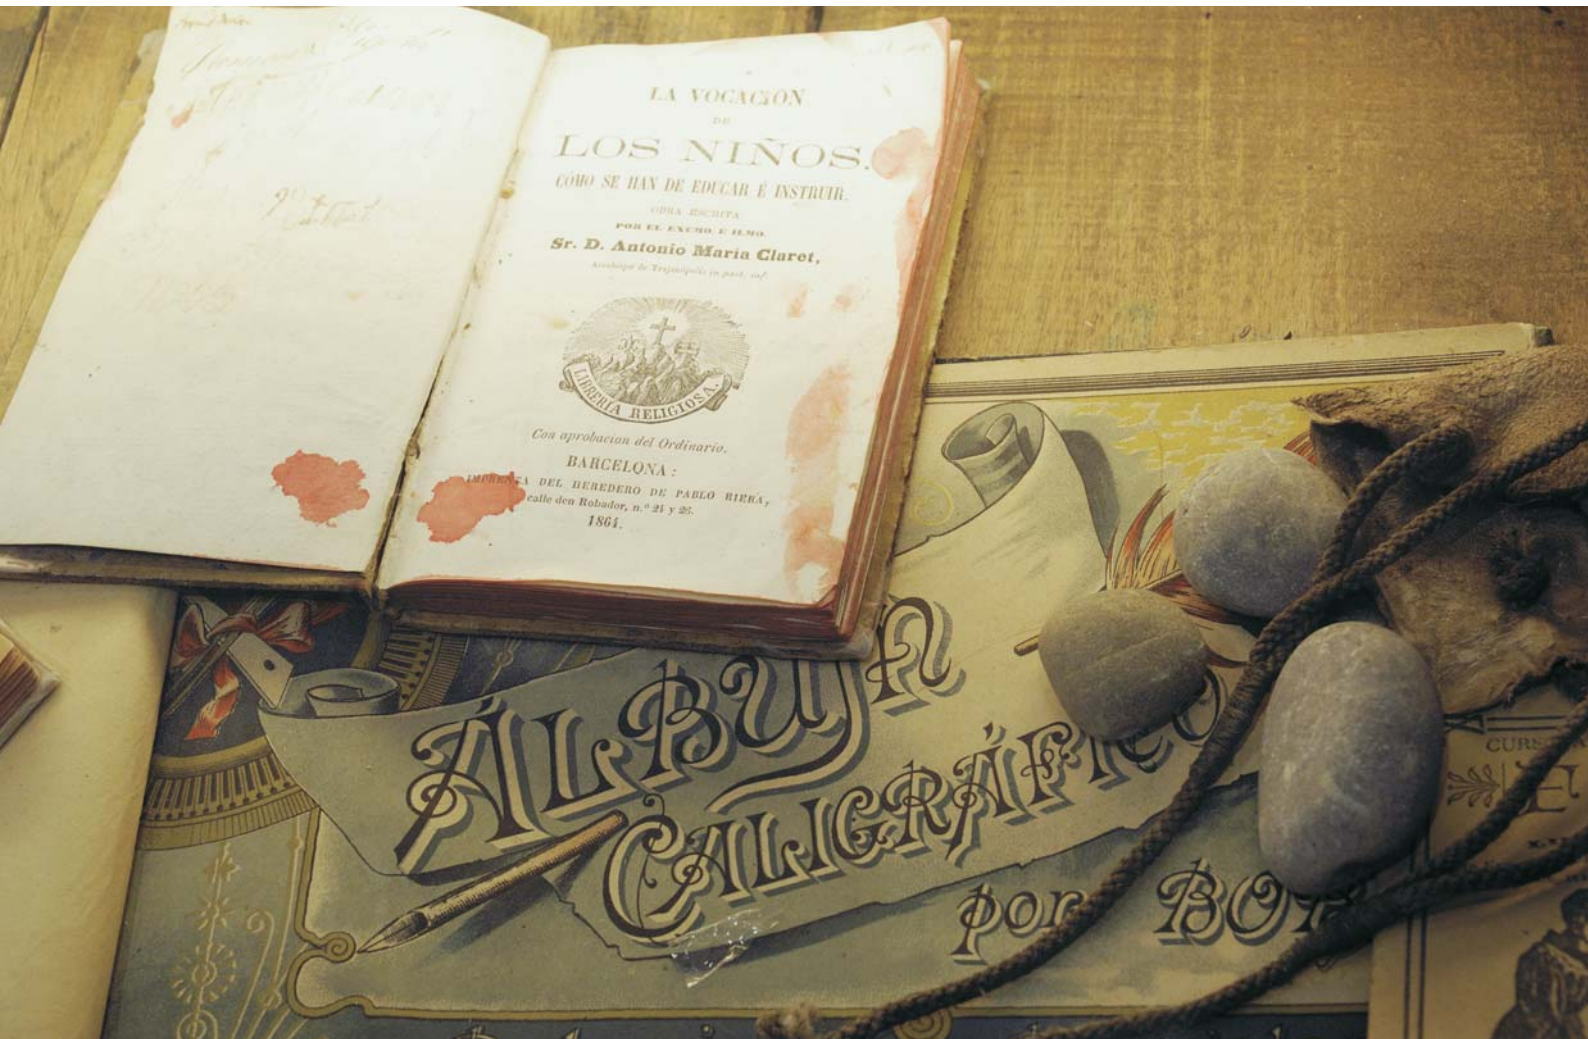 LA VOCACION
DE
LOS NIÑOS.
CÓMO SE HAN DE EDUCAR É INSTRUIR.
OBRA ESCRITA
POR EL EXCMO. É ILMO.
Sr. D. Antonio María Claret,
Arzobispo de Trajanópolis in part. inf.
LIBRERÍA RELIGIOSA.
Con aprobacion del Ordinario.
BARCELONA:
IMPRENTA DEL HEREDERO DE PABLO RIERA,
calle den Robador, n.º 24 y 26.
1864.
ÁLBUM
CALIGRÁFICO
por
CURS
E